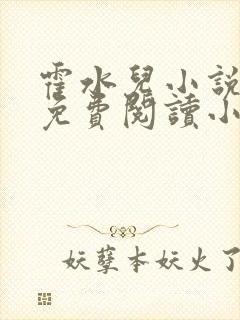 霍水兒小說
免費閱讀小
妖孽本妖火了